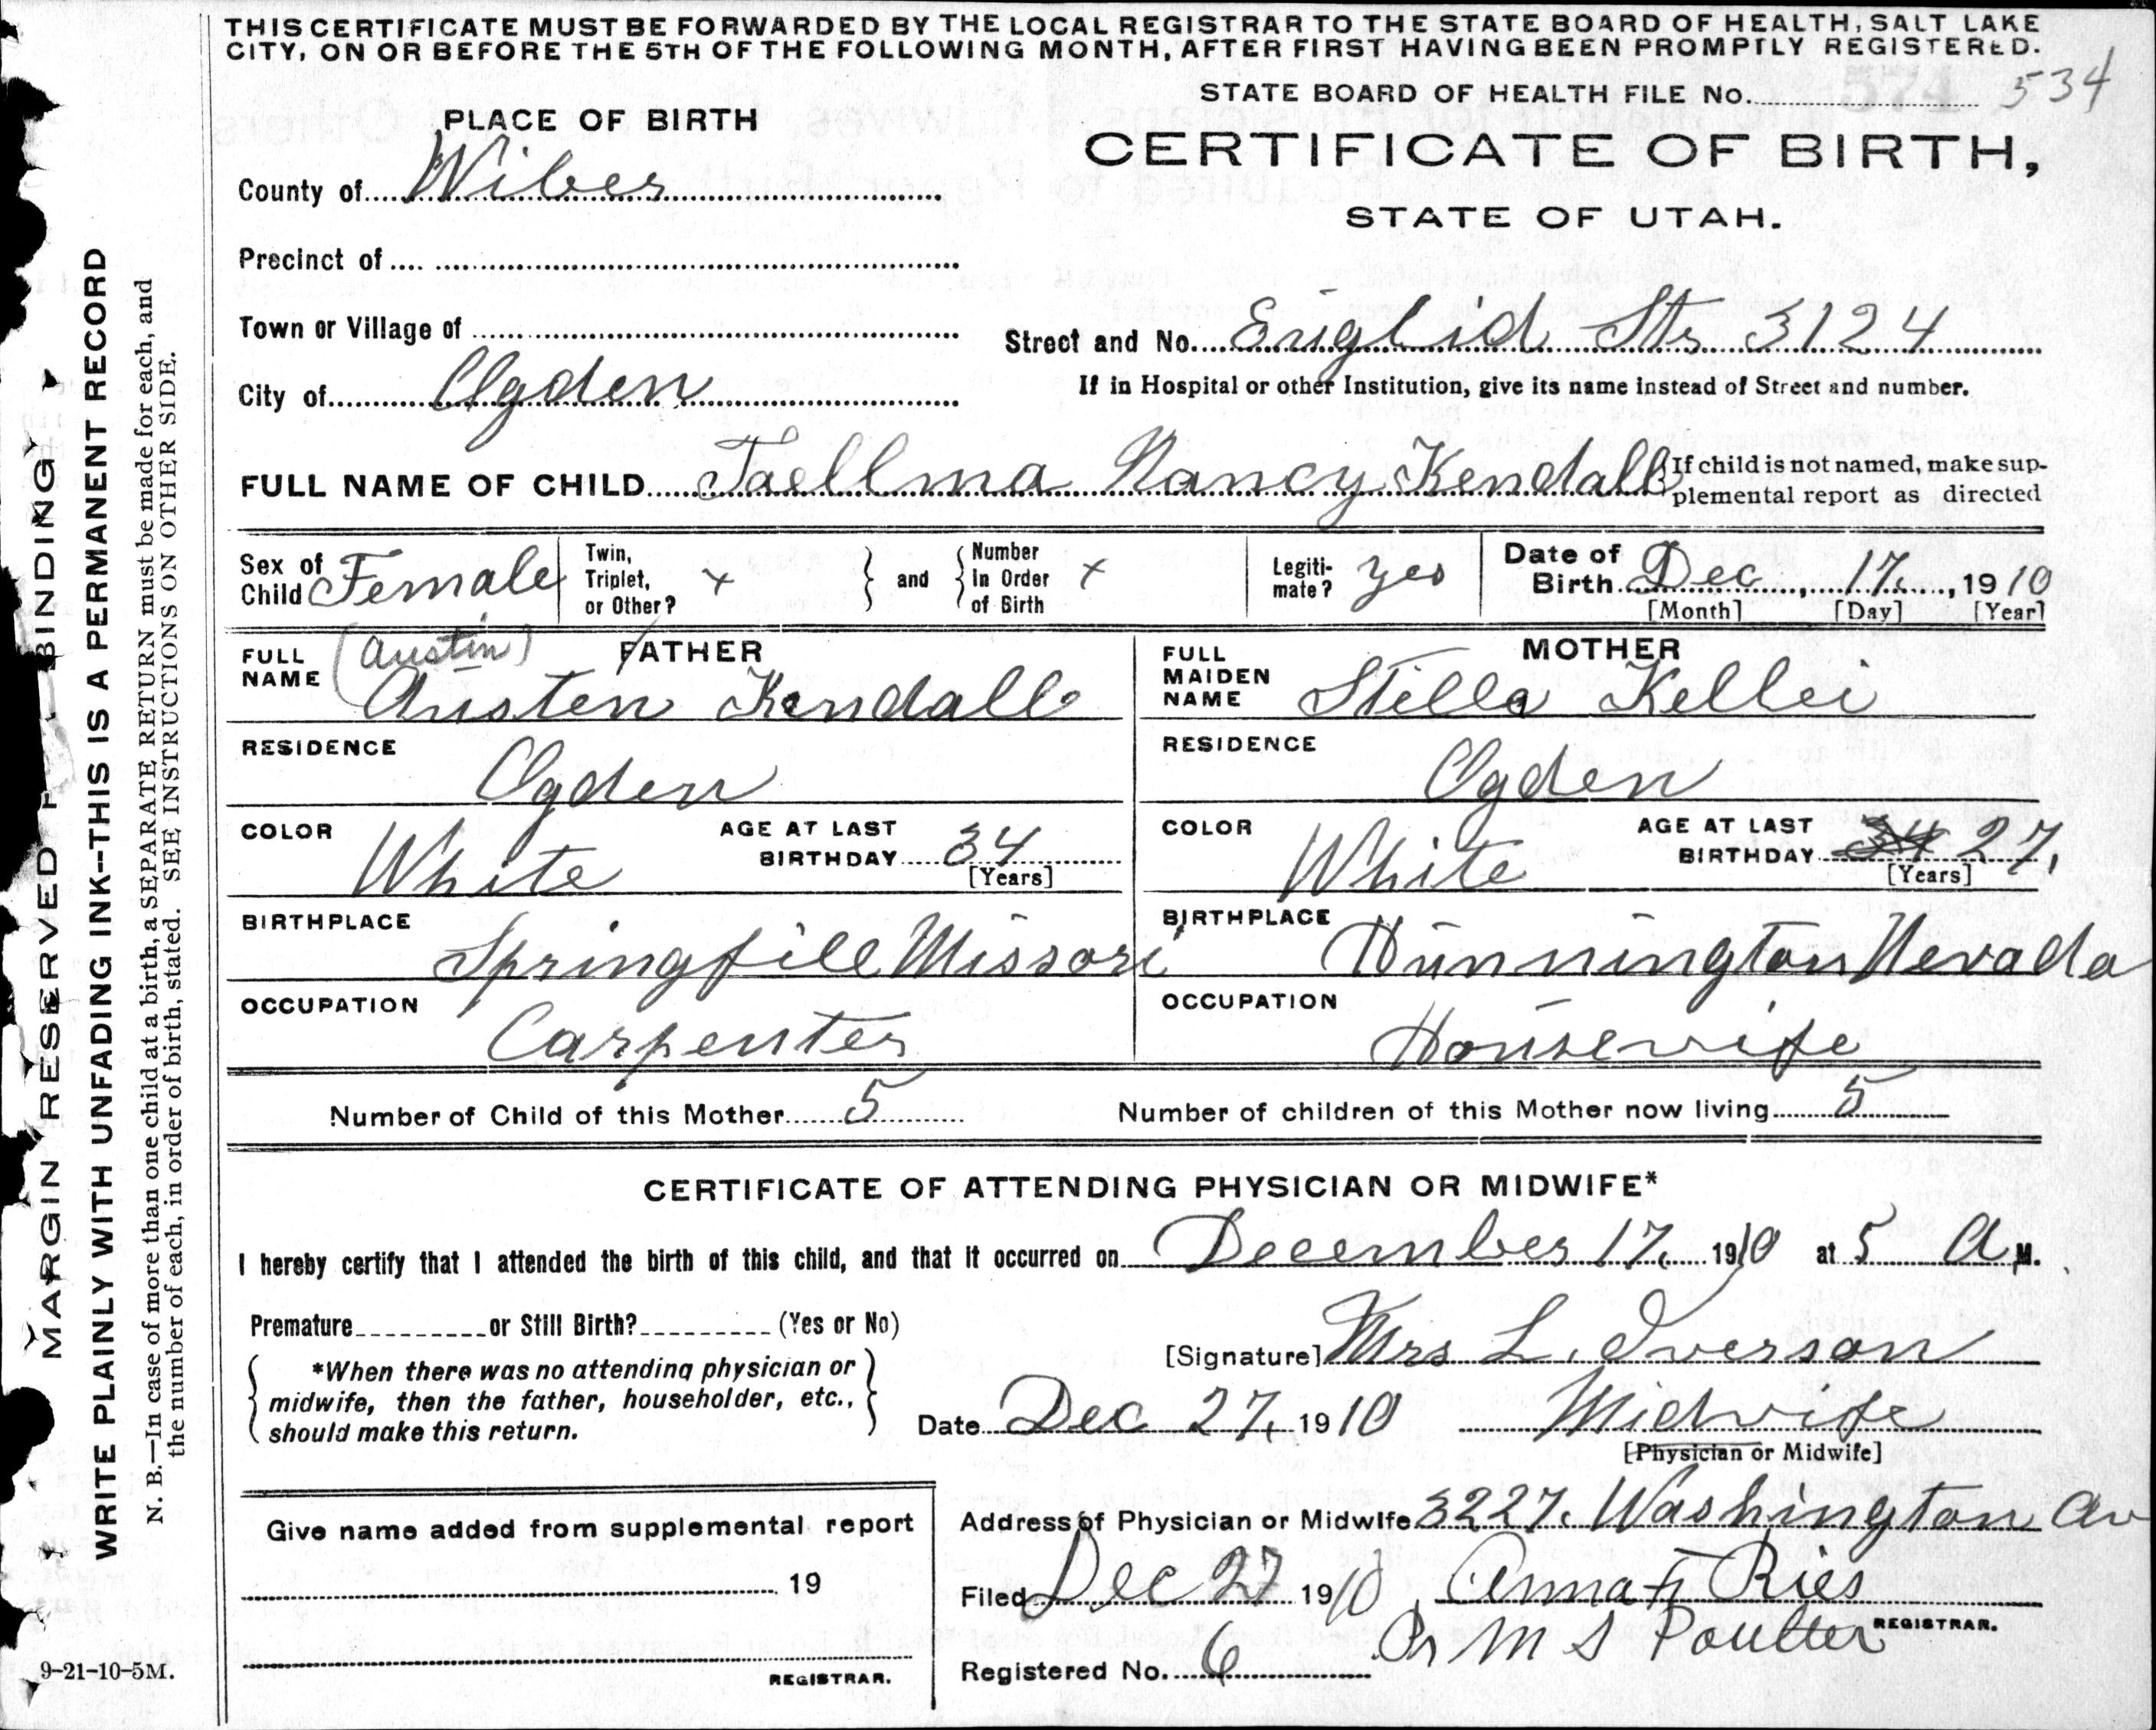 THIS CERTIFICATE MUST BE FORWARDED BY THE LOCAL REGISTRAR TO THE STATE BOARD OF HEALTH, SALT LAKE
CITY, ON OR BEFORE THE 5TH OF THE FOLLOWING MONTH, AFTER FIRST HAVING BEEN PROMPTLY REGISTERED.
STATE BOARD OF HEALTH FILE No. 534
PLACE OF BIRTH
CERTIFICATE OF BIRTH,
STATE OF UTAH.
County of Wiber
Precinct of
Town or Village of
Street and No. Englid Str 3124
City of Ogden
If in Hospital or other Institution, give its name instead of Street and number.
FULL NAME OF CHILD Taellma Nancy Kendall
If child is not named, make sup-
plemental report as directed
Sex of Child Female
Twin, Triplet, or Other? x
and
Number In Order of Birth x
Legiti-mate? yes
Date of Birth Dec, 17., 1910
[Month] [Day] [Year]
FATHER
FULL NAME (Austin)
Austen Kendall
MOTHER
FULL MAIDEN NAME Stella Kellei
RESIDENCE Ogden
RESIDENCE Ogden
COLOR White
AGE AT LAST BIRTHDAY 34
[Years]
COLOR White
AGE AT LAST BIRTHDAY 34 27.
[Years]
BIRTHPLACE Springfill Missori
BIRTHPLACE Hunnington Nevada
OCCUPATION Carpenter
OCCUPATION Housewife
Number of Child of this Mother 5
Number of children of this Mother now living 5
CERTIFICATE OF ATTENDING PHYSICIAN OR MIDWIFE*
I hereby certify that I attended the birth of this child, and that it occurred on December 17, 1910 at 5 A M.
Premature or Still Birth? (Yes or No)
[Signature] Mrs L. Iverson
*When there was no attending physician or
midwife, then the father, householder, etc.,
should make this return.
Date Dec 27, 1910 Midwife
[Physician or Midwife]
Give name added from supplemental report
19
REGISTRAR.
Address of Physician or Midwife 3227. Washington Av
Filed Dec 27 1910 Anna F Ries
REGISTRAR.
Pr M S Poulter
Registered No. 6
MARGIN RESERVED F BINDING
WRITE PLAINLY WITH UNFADING INK--THIS IS A PERMANENT RECORD
N. B.—In case of more than one child at a birth, a SEPARATE RETURN must be made for each, and
the number of each, in order of birth, stated. SEE INSTRUCTIONS ON OTHER SIDE.
9-21-10-5M.